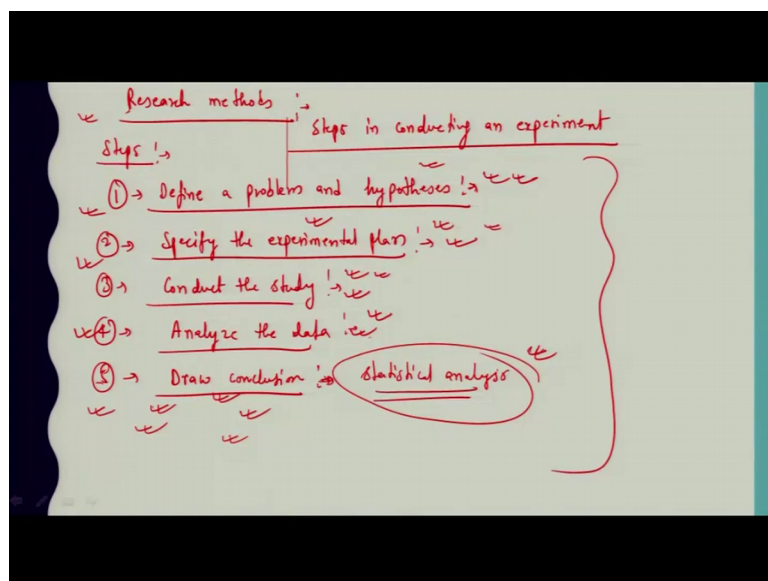 Research methods :→
Steps in conducting an experiment
Steps :→
① → Define a problem and hypotheses :→
② → Specify the experimental plan :→
③ → Conduct the study :→
④ → Analyze the data :
⑤ → Draw conclusion :→ statistical analysis